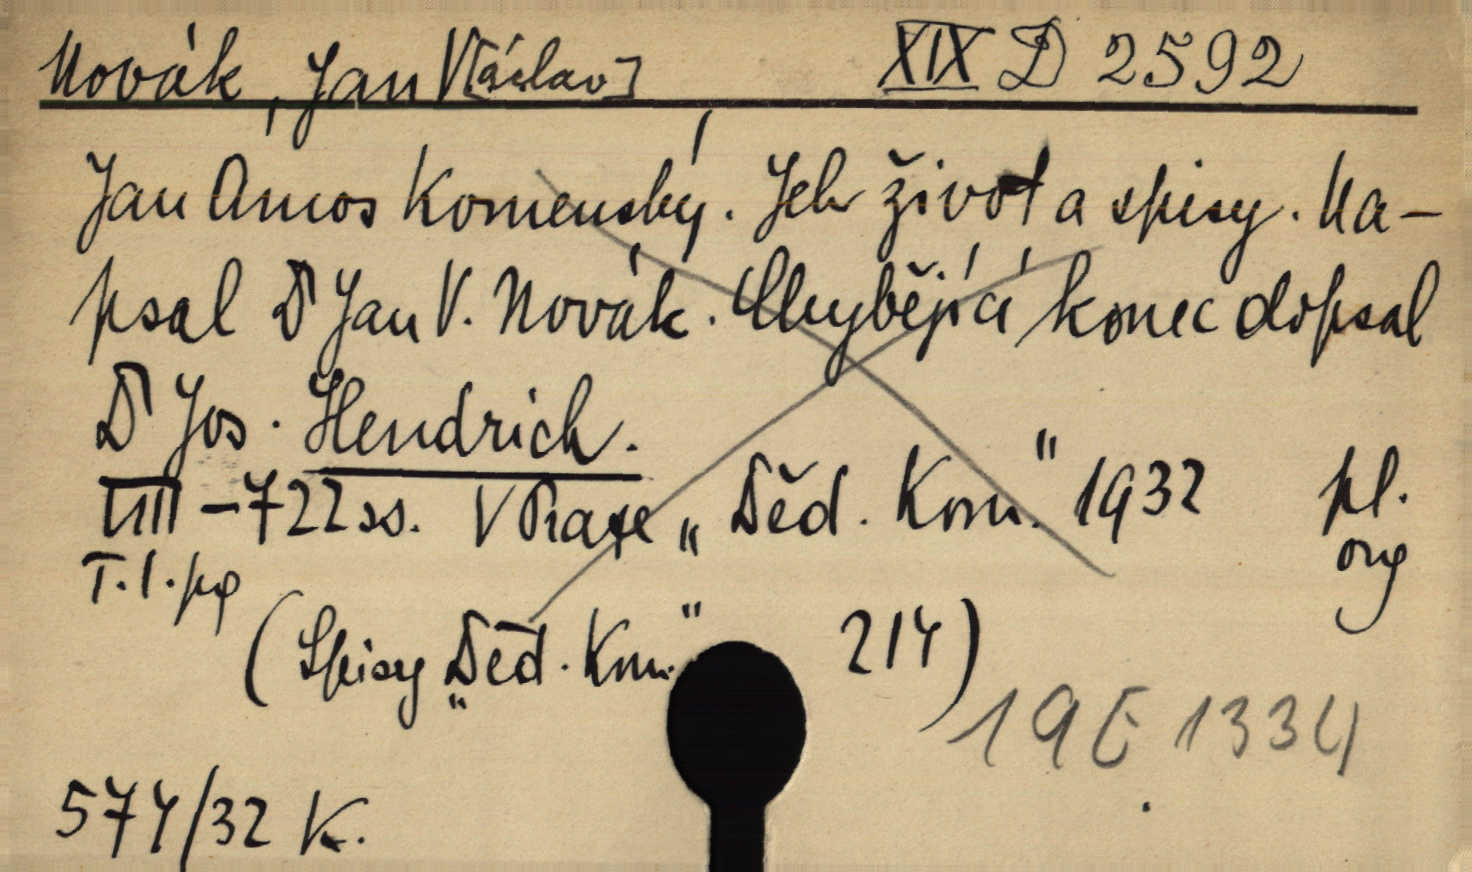 Novák, Jan V[áclav] XIX D 2592
Jan Amos Komenský. Jeho život a spisy. Na-
psal Dr Jan V. Novák. Chybějící konec dopsal
Dr Jos. Hendrich.
VIII – 722 ss. V Praze „Děd. Kom.“ 1932 pl.
T. l. pg org
(Spisy „Děd. Kom.“ 214)
19 E 1334
574/32 K.